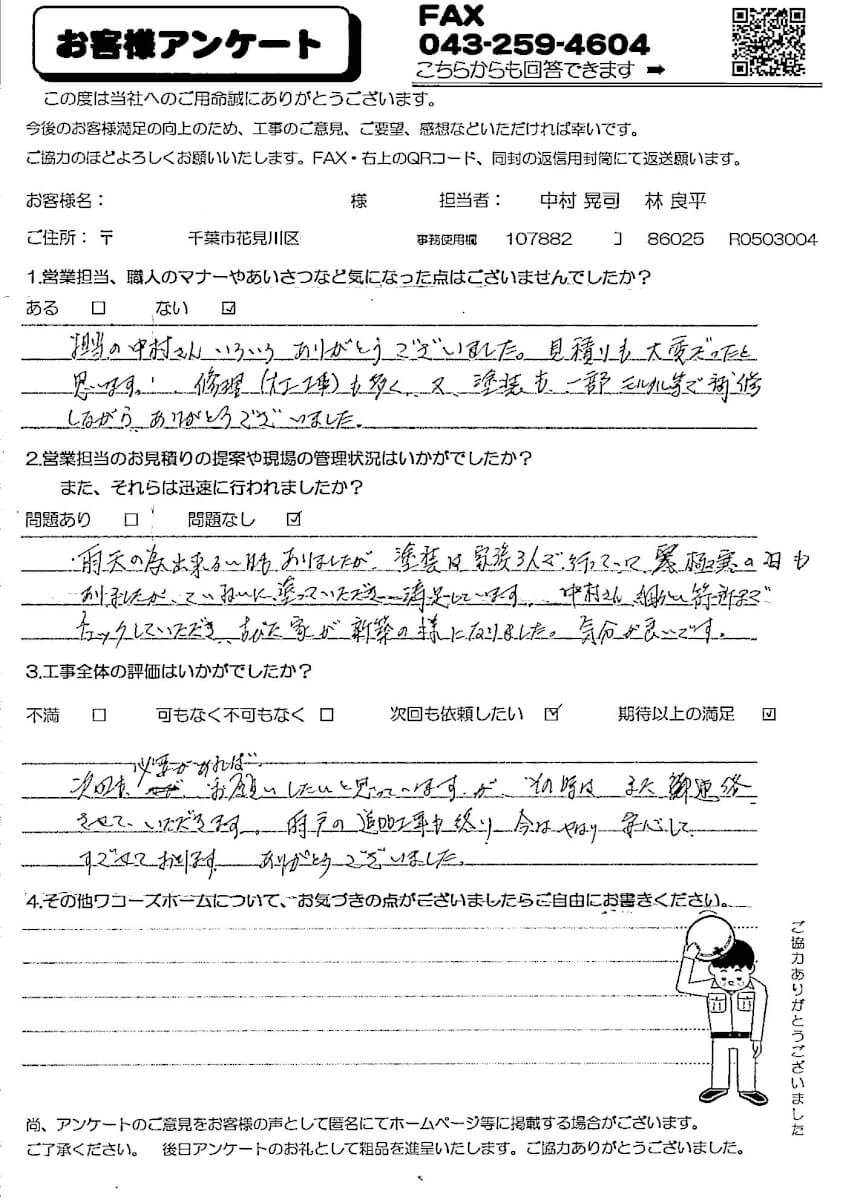 お客様アンケート
FAX
043-259-4604
こちらからも回答できます ➡
この度は当社へのご用命誠にありがとうございます。
今後のお客様満足の向上のため、工事のご意見、ご要望、感想などいただければ幸いです。
ご協力のほどよろしくお願いいたします。FAX・右上のQRコード、同封の返信用封筒にて返送願います。
お客様名： 様 担当者： 中村 晃司 林 良平
ご住所：〒 千葉市花見川区 事務使用欄 107882 コ 86025 R0503004
1.営業担当、職人のマナーやあいさつなど気になった点はございませんでしたか？
ある □ ない ☑
担当の中村さんいろいろありがとうございました。見積りも大変だったと
思います。！、修理（大工工事）も多く、又、塗装も一部モルタル等で補修
しながら、ありがとうございました。
2.営業担当のお見積りの提案や現場の管理状況はいかがでしたか？
また、それらは迅速に行われましたか？
問題あり □ 問題なし ☑
・雨天の為出来ない日もありましたが、塗装は家族3人で行っていて極寒の日も
ありましたが、ていねいに塗っていただき満足しています。中村さん細かい箇所まで
チェックしていただき、古びた家が新築の様になりました。気分が良いです。
3.工事全体の評価はいかがでしたか？
不満 □ 可もなく不可もなく □ 次回も依頼したい ☑ 期待以上の満足 ☑
必要があれば
次回も、お願いしたいと思っていますが、その時はまた御連絡
させていただきます。雨戸の追加工事も終り、今はやはり安心して
すごせております。ありがとうございました。
4.その他ワコーズホームについて、お気づきの点がございましたらご自由にお書きください。
ご協力ありがとうございました
尚、アンケートのご意見をお客様の声として匿名にてホームページ等に掲載する場合がございます。
ご了承ください。 後日アンケートのお礼として粗品を進呈いたします。ご協力ありがとうございました。